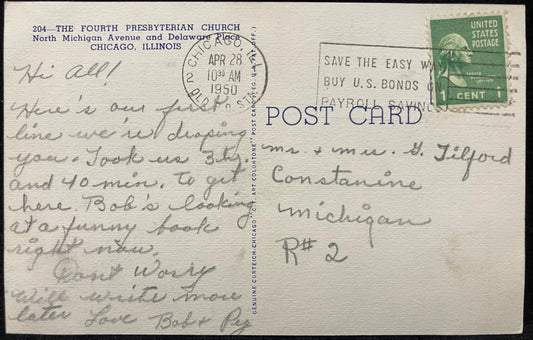 204—THE FOURTH PRESBYTERIAN CHURCH
North Michigan Avenue and Delaware Place
CHICAGO, ILLINOIS
Hi All!
Here's our first
line we're droping
you. Took us 3 hr.
and 40 min. to get
here. Bob's looking
at a funny book
right now.
Dont Worry
Will write more
later Love Bob & Peg
GENUINE CURTEICH-CHICAGO "C.T. ART-COLORTONE" POST CARD (REG. U.S. PAT. OFF.)
CHICAGO, IL
2
APR 28
10 30 AM
1950
STA.
SAVE THE EASY W
BUY U.S. BONDS
PAYROLL SAVIN
UNITED
STATES
POSTAGE
1 CENT 1
POST CARD
Mr. & Mrs. G. Tilford
Constanine
Michigan
R# 2